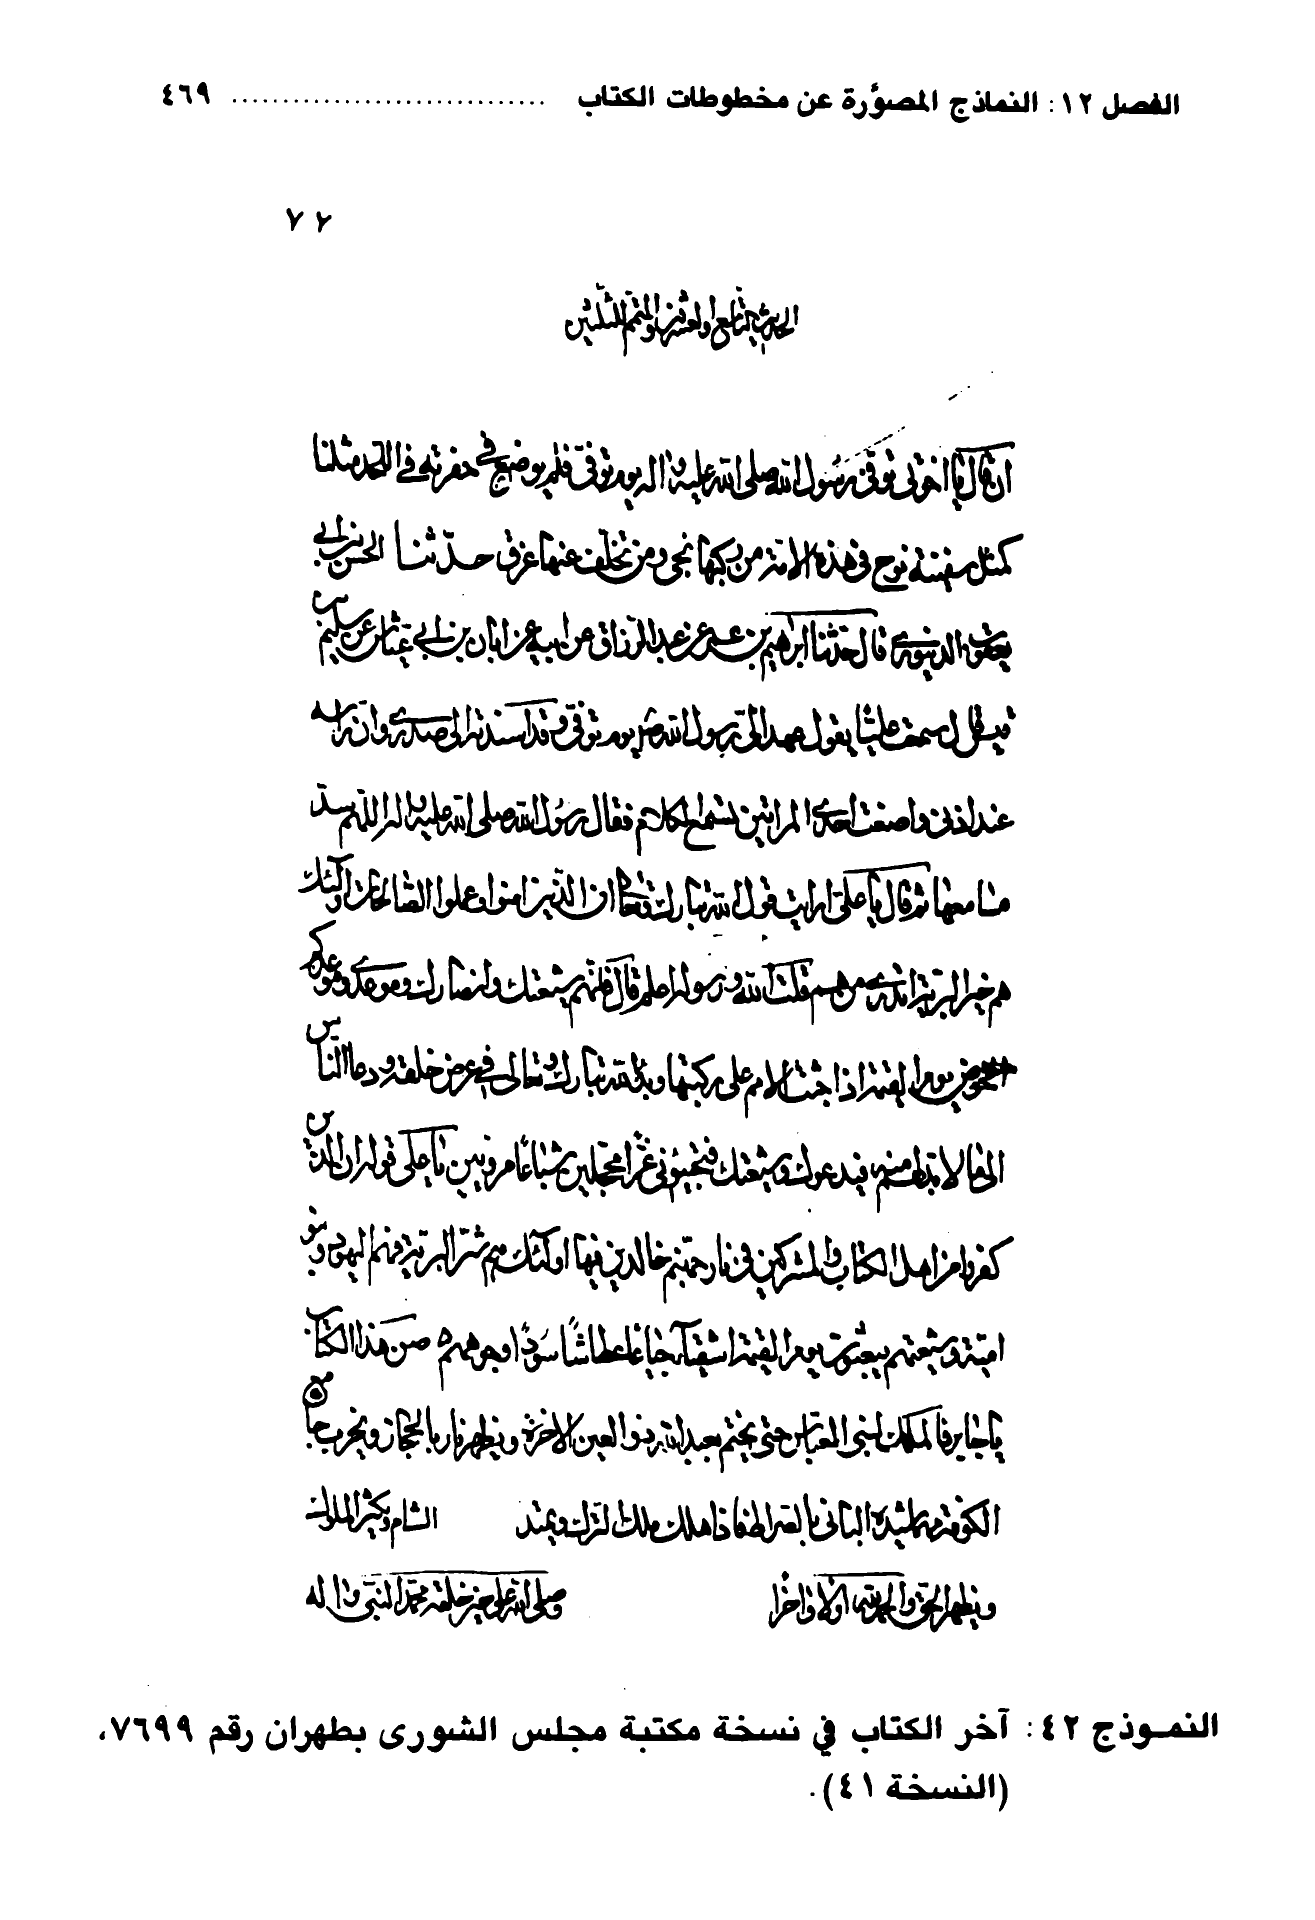 الفصل ١٢: النماذج المصوَّرة عن مخطوطات الكتاب ............................... ٤٦٩
٧٢
الحديث التاسع والعشرون والمتمم للثلثين
ان قال يا اخوتى توفى رسول الله صلى الله عليه واله يوم توفى فلم يوضع فى حفرته
كمثل سفينة نوح فى هذه الامة من ركبها نجى ومن تخلف عنها غرق حدّثنا الحسن بن ابى
يعقوب الدينورى قال حدثنا ابرهيم بن عمر عن عبد الرزاق عن ابيه عن ابان بن ابى عياش عن سليم
قيس قال سمعت عليّا يقول عهد الىّ رسول الله يوم توفى وقد اسندته الى صدرى وان راسه
عند اذنى واصغت احدى المراتين لتسمع الكلام فقال رسول الله صلى الله عليه واله اللهم سدّ
مسامعها ثم قال يا على ارايت قول الله تبارك وتعالى ان الذين امنوا وعملوا الصالحات اولئك
هم خير البرية اتدرى من هم قلت الله ورسوله اعلم قال فانهم شيعتك وانصارك وموعدى وموعدكم
الحوض يوم القيمة اذا جثت الامم على ركبها وبدا لله تبارك وتعالى فى عرض خلقه ودعا الناس
الى ما لا بد لهم منه فيدعوك وشيعتك فتجيئونى غرّا محجلين شباعًا مرويين يا على قوله ان الذين
كفروا من اهل الكتاب والمشركين فى نار جهنم خالدين فيها اولئك هم شر البرية فهم اليهود وبنو
امية وشيعتهم يبعثون يوم القيمة اشقياء جياعا عطاشًا سودًا وجوههم هذا الكتاب
يا جابر فالملك لبنى العباس حتى يختم بعبد الله ذو العين الاخرة ويظهر نار بالحجاز ويخرب جامع
الكوفة الثانى فاذا هلك ملك الترك ويمتد الشام ويكثر الملوك
ويظهر الحق والحمد لله اولا واخرًا وصلى الله على خير خلقه محمد النبى واله
النمـوذج ٤٢: آخر الكتاب في نسخة مكتبة مجلس الشورى بطهران رقم ٧٦٩٩،
(النسخة ٤١).